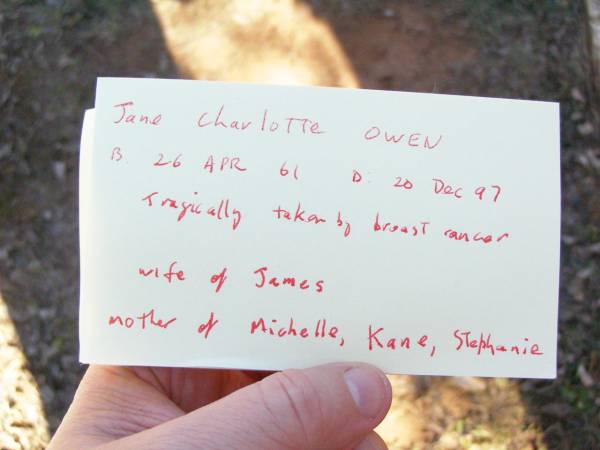 Jane Charlotte OWEN
B. 26 APR 61 D: 20 Dec 97
Tragically taken by breast cancer
wife of James
mother of Michelle, Kane, Stephanie